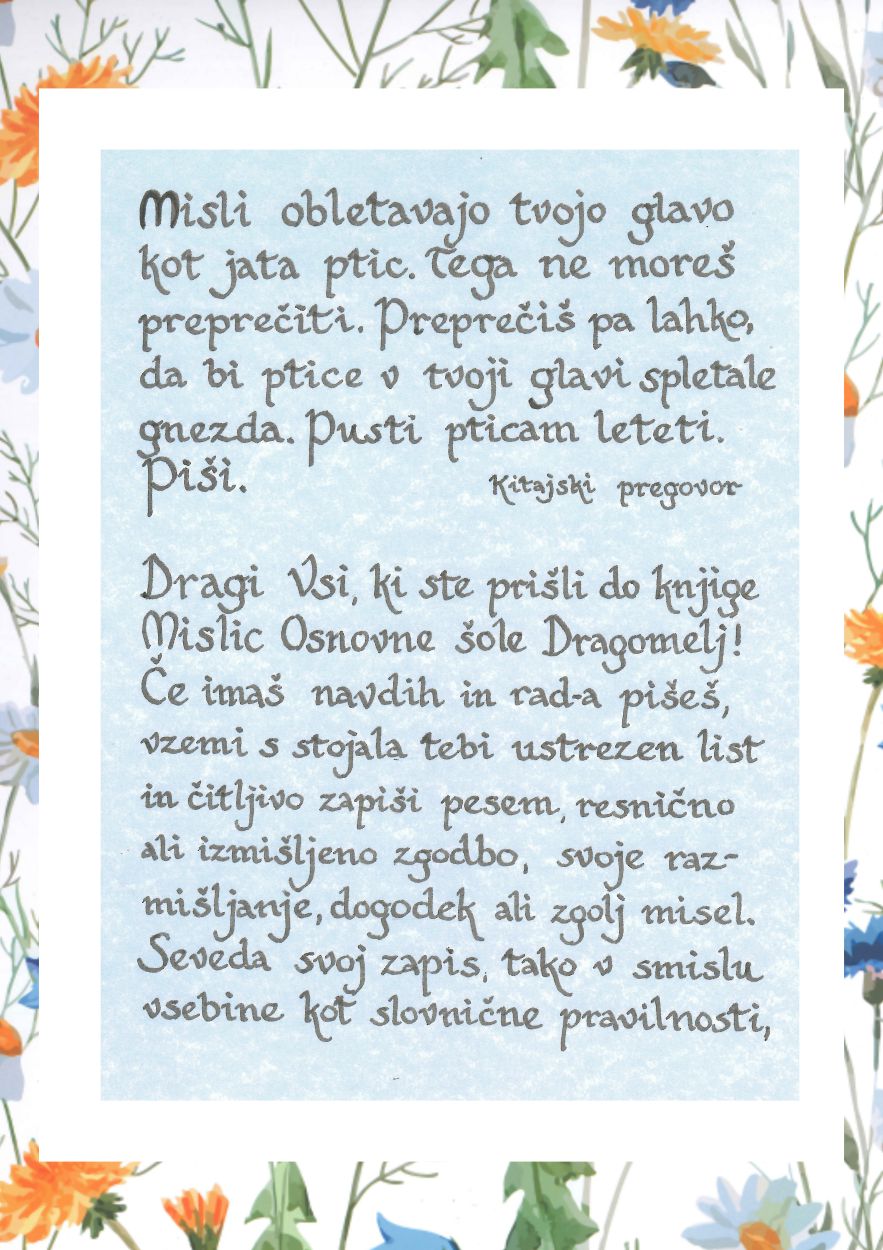 Misli obletavajo tvojo glavo
kot jata ptic. Tega ne moreš
preprečiti. Preprečiš pa lahko,
da bi ptice v tvoji glavi spletale
gnezda. Pusti pticam leteti.
Piši.
Kitajski pregovor
Dragi Vsi, ki ste prišli do knjige
Mislic Osnovne šole Dragomelj!
Če imaš navdih in rad-a pišeš,
vzemi s stojala tebi ustrezen list
in čitljivo zapiši pesem, resnično
ali izmišljeno zgodbo, svoje raz-
mišljanje, dogodek ali zgolj misel.
Seveda svoj zapis, tako v smislu
vsebine kot slovnične pravilnosti,